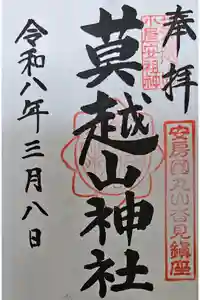 奉拝
安房国丸山沓見鎮座
莫越山神社
令和八年三月八日